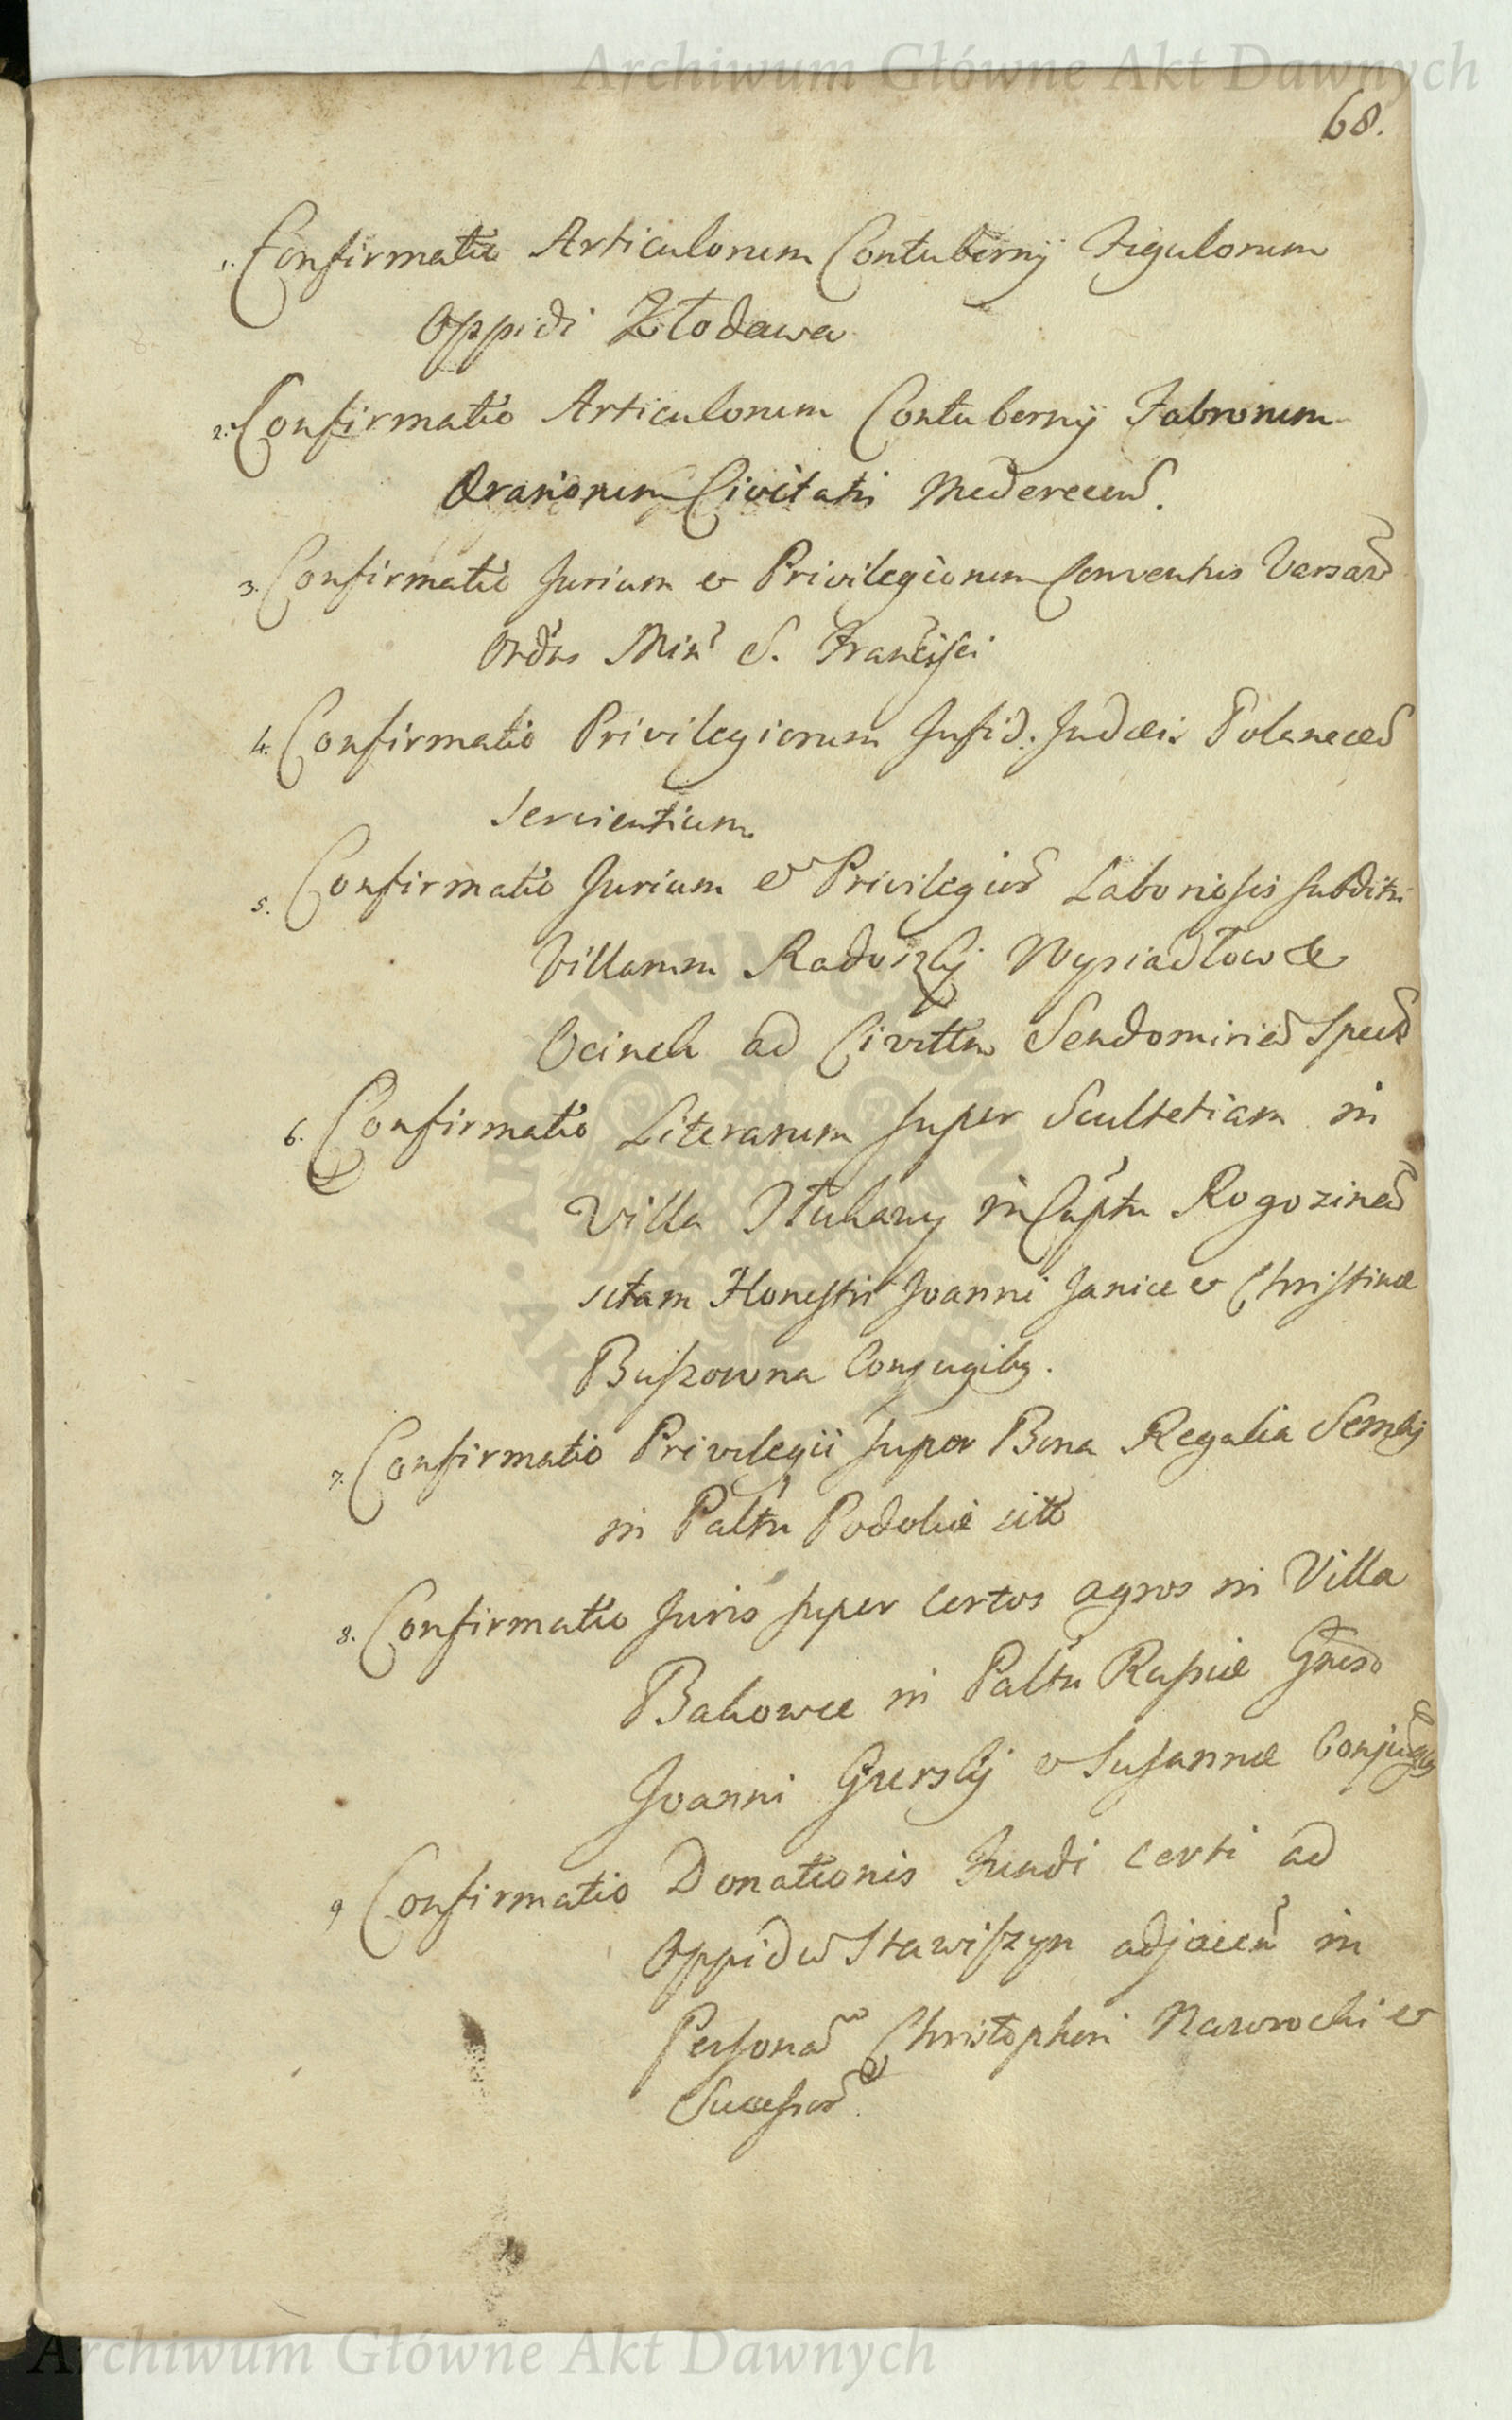 Archiwum Główne Akt Dawnych
68.
1. Confirmatio Articulorum Contubernij Figulorum
Oppidi Kłodawa
2. Confirmatio Articulorum Contubernij Fabrorum
Ærariorum Civitatis
3. Confirmatio Jurium et Privilegiorum Conventus Varsav
Ordns Min S. Francisci
4. Confirmatio Privilegiorum Infid. Judæis Polanecen
servientium
5. Confirmatio Jurium et Privilegior Laboriosis subditis
Villarum Radoszky Wysiadłow &
Ocinek ad Civittm Sendomirien spect
6. Confirmatio Literarum super Scultetiam in
Villa Stukawy in Captu Rogozinen
sitam Honestis Joanni Janice et Christinæ
Buszowna Conjugibq.
7. Confirmatio Privilegii super Bona Regalia Semky
in Paltu Podoliæ sita
8. Confirmatio Juris super certos agros in Villa
Bakowce in Paltu Russiæ Gneso
Joanni Gurskij et Susannæ Conjugbq
9 Confirmatio Donationis Fundi certi ad
Oppidu Stawiszyn adjacen in
Persona Christopheri Nawrocki et
Successor
ARCHIWUM GŁÓWNE AKT DAWNYCH
Archiwum Główne Akt Dawnych